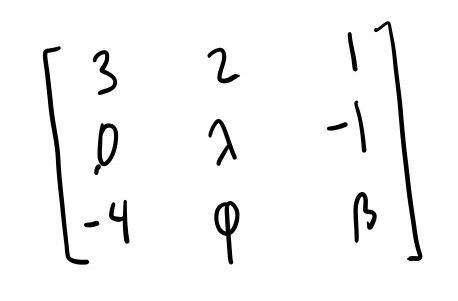 3 2 1
0 λ -1
-4 φ β